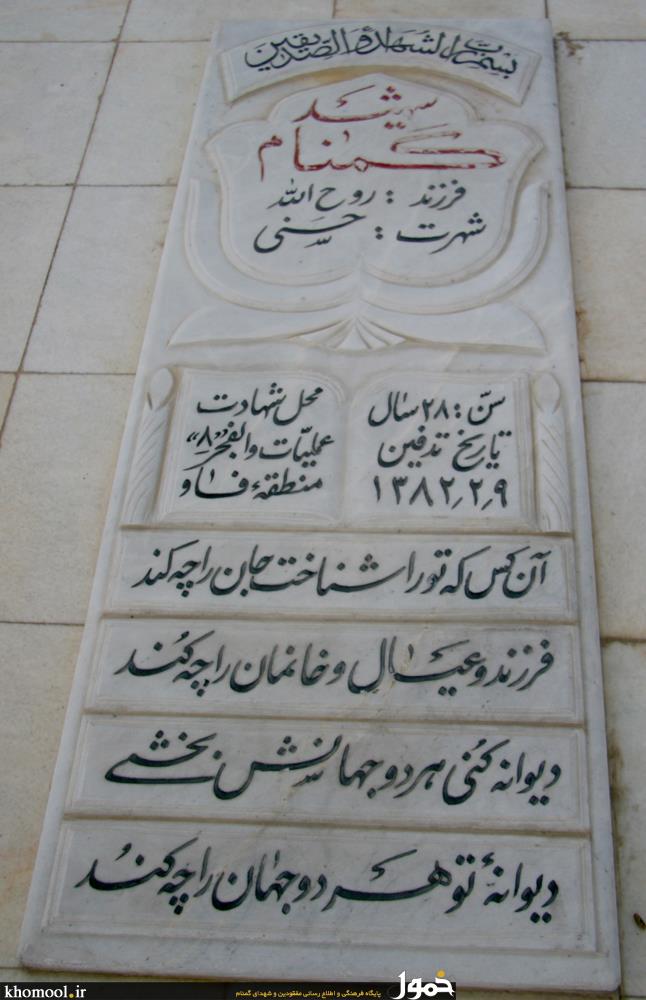 بسم رب الشهداء و الصدیقین
شهید
گمنام
فرزند : روح الله
شهرت : حسنی
سن : ۲۸ سال
تاریخ تدفین
۱۳۸۲٫۲٫۹
محل شهادت
عملیات والفجر "۸"
منطقهٔ فاو
آن کس که تو را شناخت جان را چه کند
فرزند و عیال و خانمان را چه کُند
دیوانه کُنی هر دو جهانش بخشی
دیوانهٔ تو هر دو جهان را چه کُند
khomool.ir
پایگاه فرهنگی و اطلاع رسانی مفقودین و شهدای گمنام
خمول
www.khomool.ir